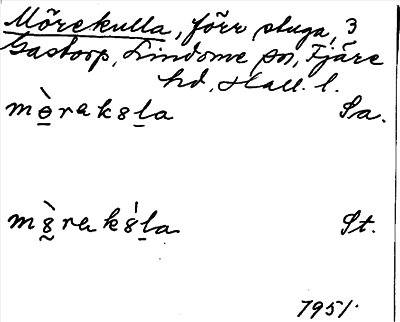 Mörekulla, förr stuga, 3
Gastorp, Lindome sn, Fjäre
hd, Hall. l.
mɵ̀rak8la Sa.
m8̀rak8́la St.
1951.